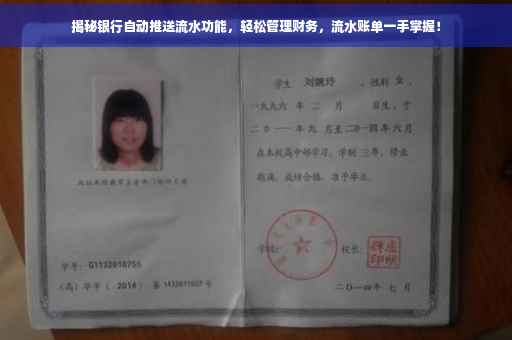 揭秘银行自动推送流水功能，轻松管理财务，流水账单一手掌握！
学生 刘婉玲 ，性别 女 ，
一九九六 年 二 月 日生，于
二〇一一年九 月至二〇一四年六月
在本校高中部学习，学制 三年，修业
期满，成绩合格，准予毕业。
学校： 校长：
学号： G1132010755
（高）毕字（ 2014 ）第 1432011607 号
二〇一四年 七 月